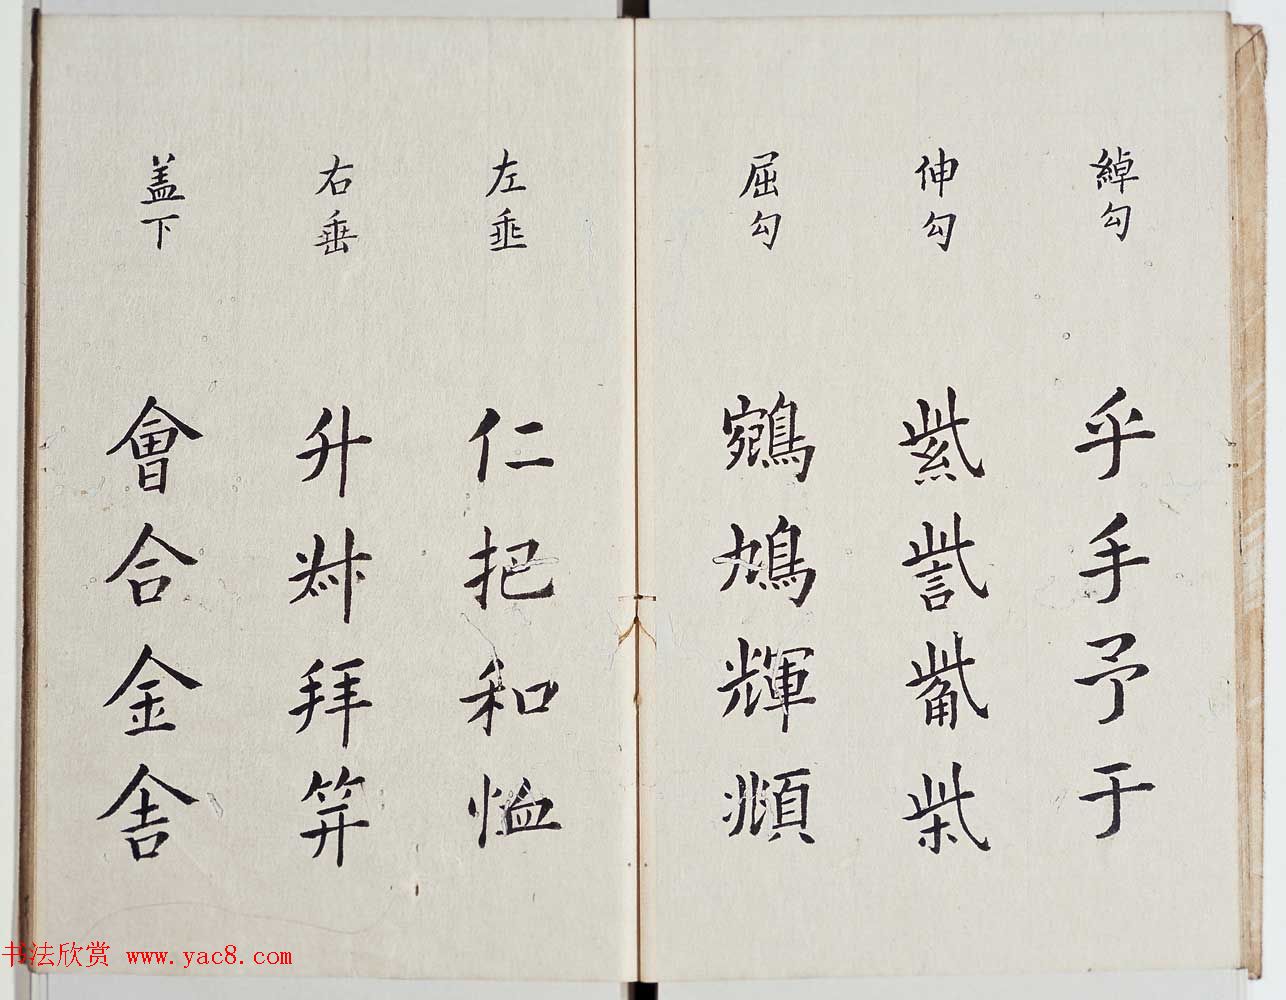 綽勾 乎手予于
伸勾 紫訾觜柴
屈勾 鵷鳩輝頫
左垂 仁把和恤
右垂 升拜笄
盖下 會合金舎
书法欣赏 www.yac8.com